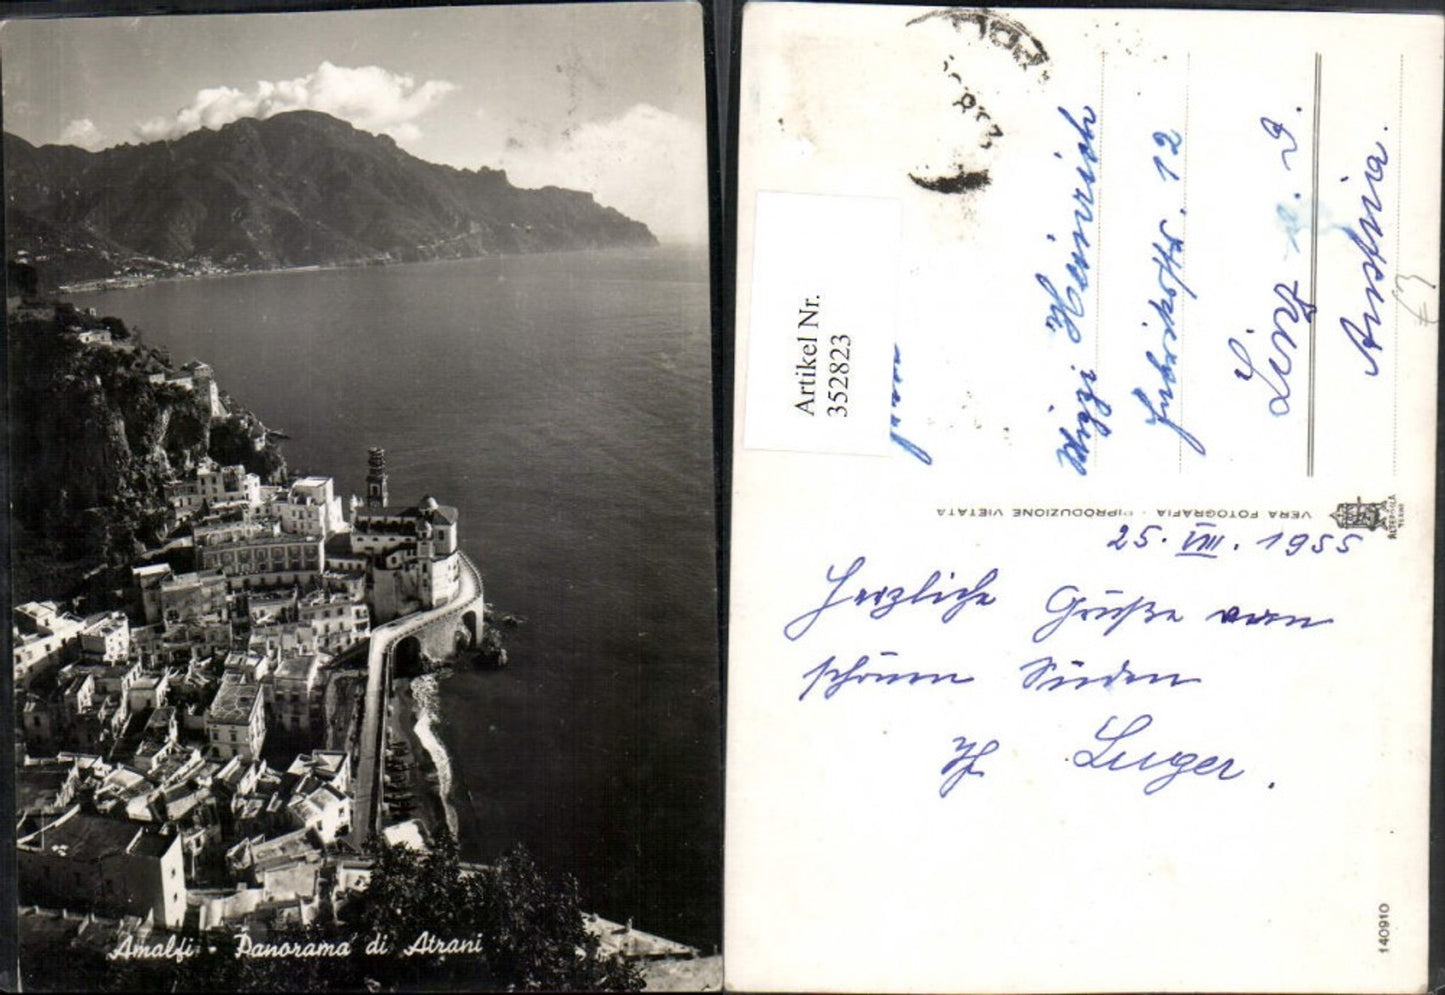 Amalfi - Panorama di Atrani
Artikel Nr.
352823
Heinrich
12
Linz a. D.
Austria.
€3
VERA FOTOGRAFIA - RIPRODUZIONE VIETATA
25. VIII. 1955
Herzliche Grüße vom
schönen Süden
Luger.
140910